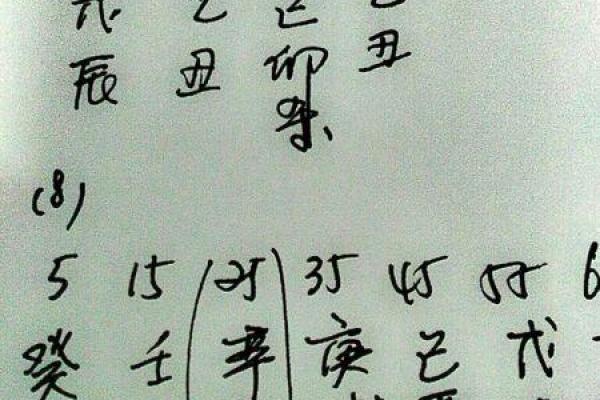 戊 乙 己 乙
辰 丑 卯 丑
(8)
5 15 25 35 45 55 6
癸 壬 辛 庚 己 戊